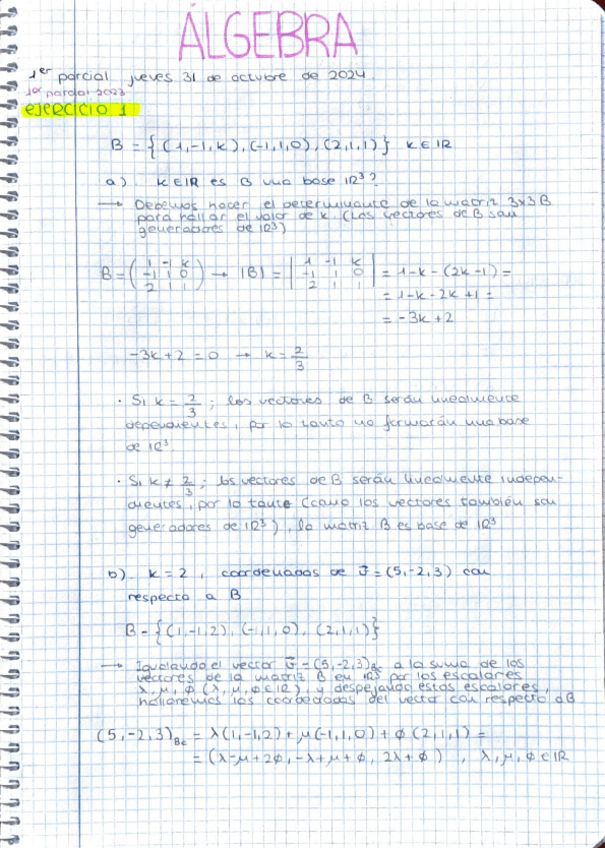 ÁLGEBRA
1er parcial jueves 31 de octubre de 2024.
1er parcial 2023
EJERCICIO 1
B = { (1,-1,k), (-1,1,0), (2,1,1) } k ∈ IR
a) k ∈ IR es B una base IR³?
→ Debemos hacer el determinante de la matriz 3x3 B
para hallar el valor de k. (Los vectores de B son
generadores de IR³)
B = ( 1 -1 k / -1 1 0 / 2 1 1 ) → |B| = | 1 -1 k / -1 1 0 / 2 1 1 | = 1-k-(2k-1) =
= 1-k-2k+1 =
= -3k+2
-3k+2 = 0 → k = 2/3
· Si k = 2/3 ; los vectores de B serán linealmente
dependientes, por lo tanto no formarán una base
de IR³.
· Si k ≠ 2/3 ; los vectores de B serán linealmente indepen-
dientes, por lo tanto (como los vectores también son
generadores de IR³), la matriz B es base de IR³
b) k = 2, coordenadas de v⃗ = (5,-2,3) con
respecto a B
B = { (1,-1,2), (-1,1,0), (2,1,1) }
→ Igualando el vector v⃗ = (5,-2,3)Bc a la suma de los
vectores de la matriz B en IR³ por los escalares
λ, μ, ϕ (λ, μ, ϕ ∈ IR), y despejando estos escalares,
hallaremos las coordenadas del vector con respecto a B
(5,-2,3)Bc = λ(1,-1,2) + μ(-1,1,0) + ϕ(2,1,1) =
= (λ-μ+2ϕ, -λ+μ+ϕ, 2λ+ϕ) , λ, μ, ϕ ∈ IR